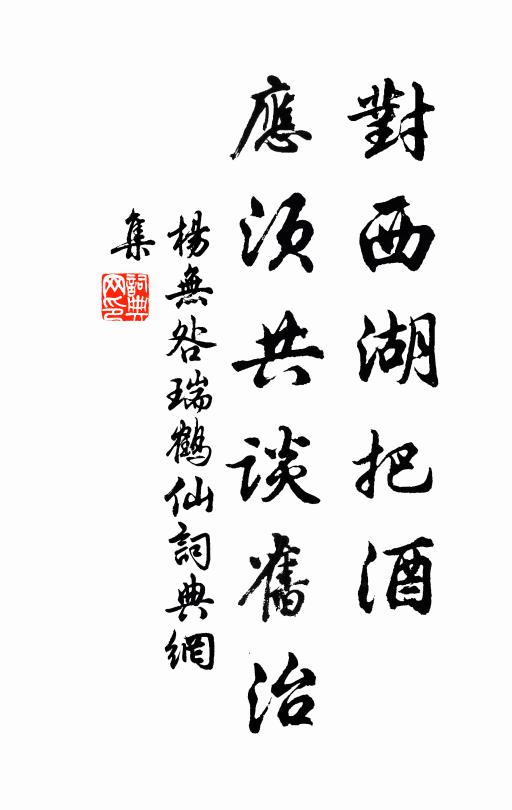 對西湖把酒
應須共談舊治
楊無咎瑞鶴仙詞典網
集
詞典
网印